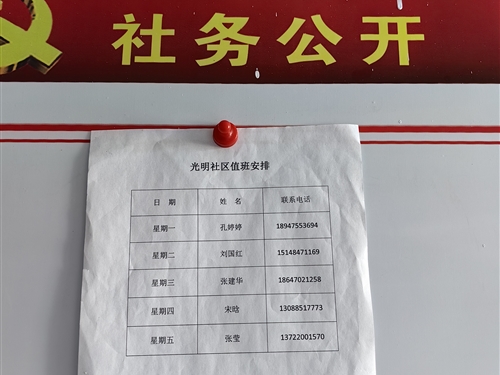 社务公开
光明社区值班安排
日 期 姓 名 联系电话
星期一 孔婷婷 18947553694
星期二 刘国红 15148471169
星期三 张建华 18647021258
星期四 宋晗 13088517773
星期五 张莹 13722001570